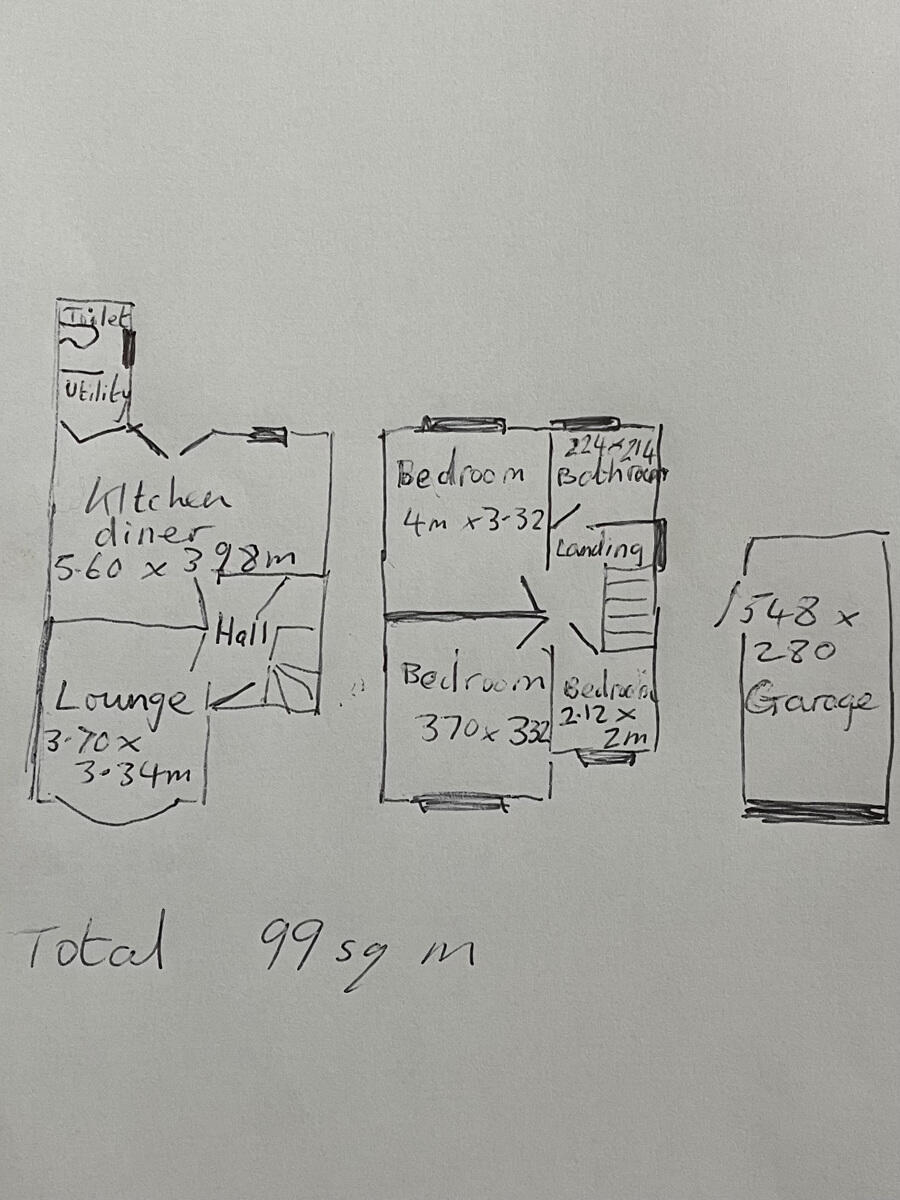 Toilet
Utility
Kitchen
diner
5.60 x 3.98m
Hall
Lounge
3.70 x
3.34m
Bedroom
4m x 3.32
224 x 214
Bathroom
Landing
Bedroom
370 x 332
Bedroom
2.12 x
2m
548 x
280
Garage
Total 99 sq m